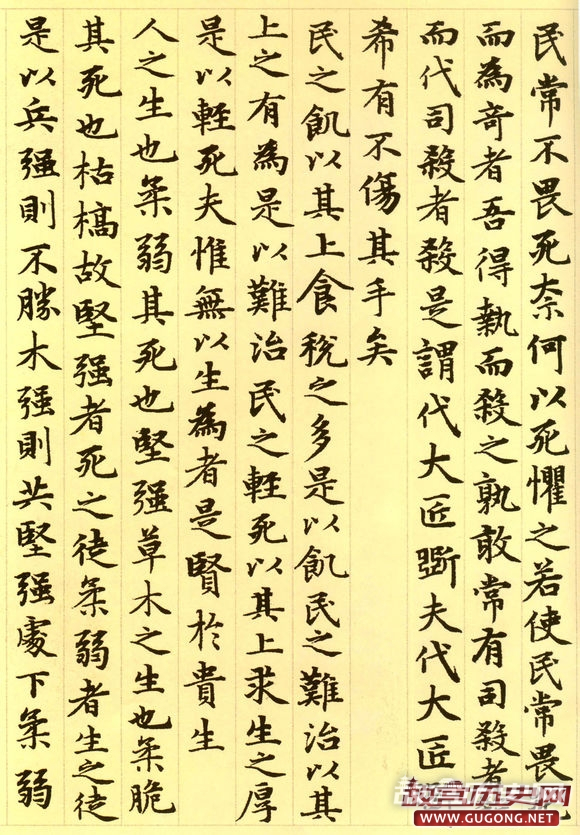 民常不畏死奈何以死懼之若使民常畏
而為奇者吾得執而殺之孰敢常有司殺者
而代司殺者殺是謂代大匠斲夫代大匠
希有不傷其手矣
民之飢以其上食稅之多是以飢民之難治以其
上之有為是以難治民之輕死以其上求生之厚
是以輕死夫惟無以生為者是賢於貴生
人之生也柔弱其死也堅强草木之生也柔脆
其死也枯槁故堅强者死之徒柔弱者生之徒
是以兵强則不勝木强則共堅强處下柔弱
故宫历史网
WWW.GUGONG.NET